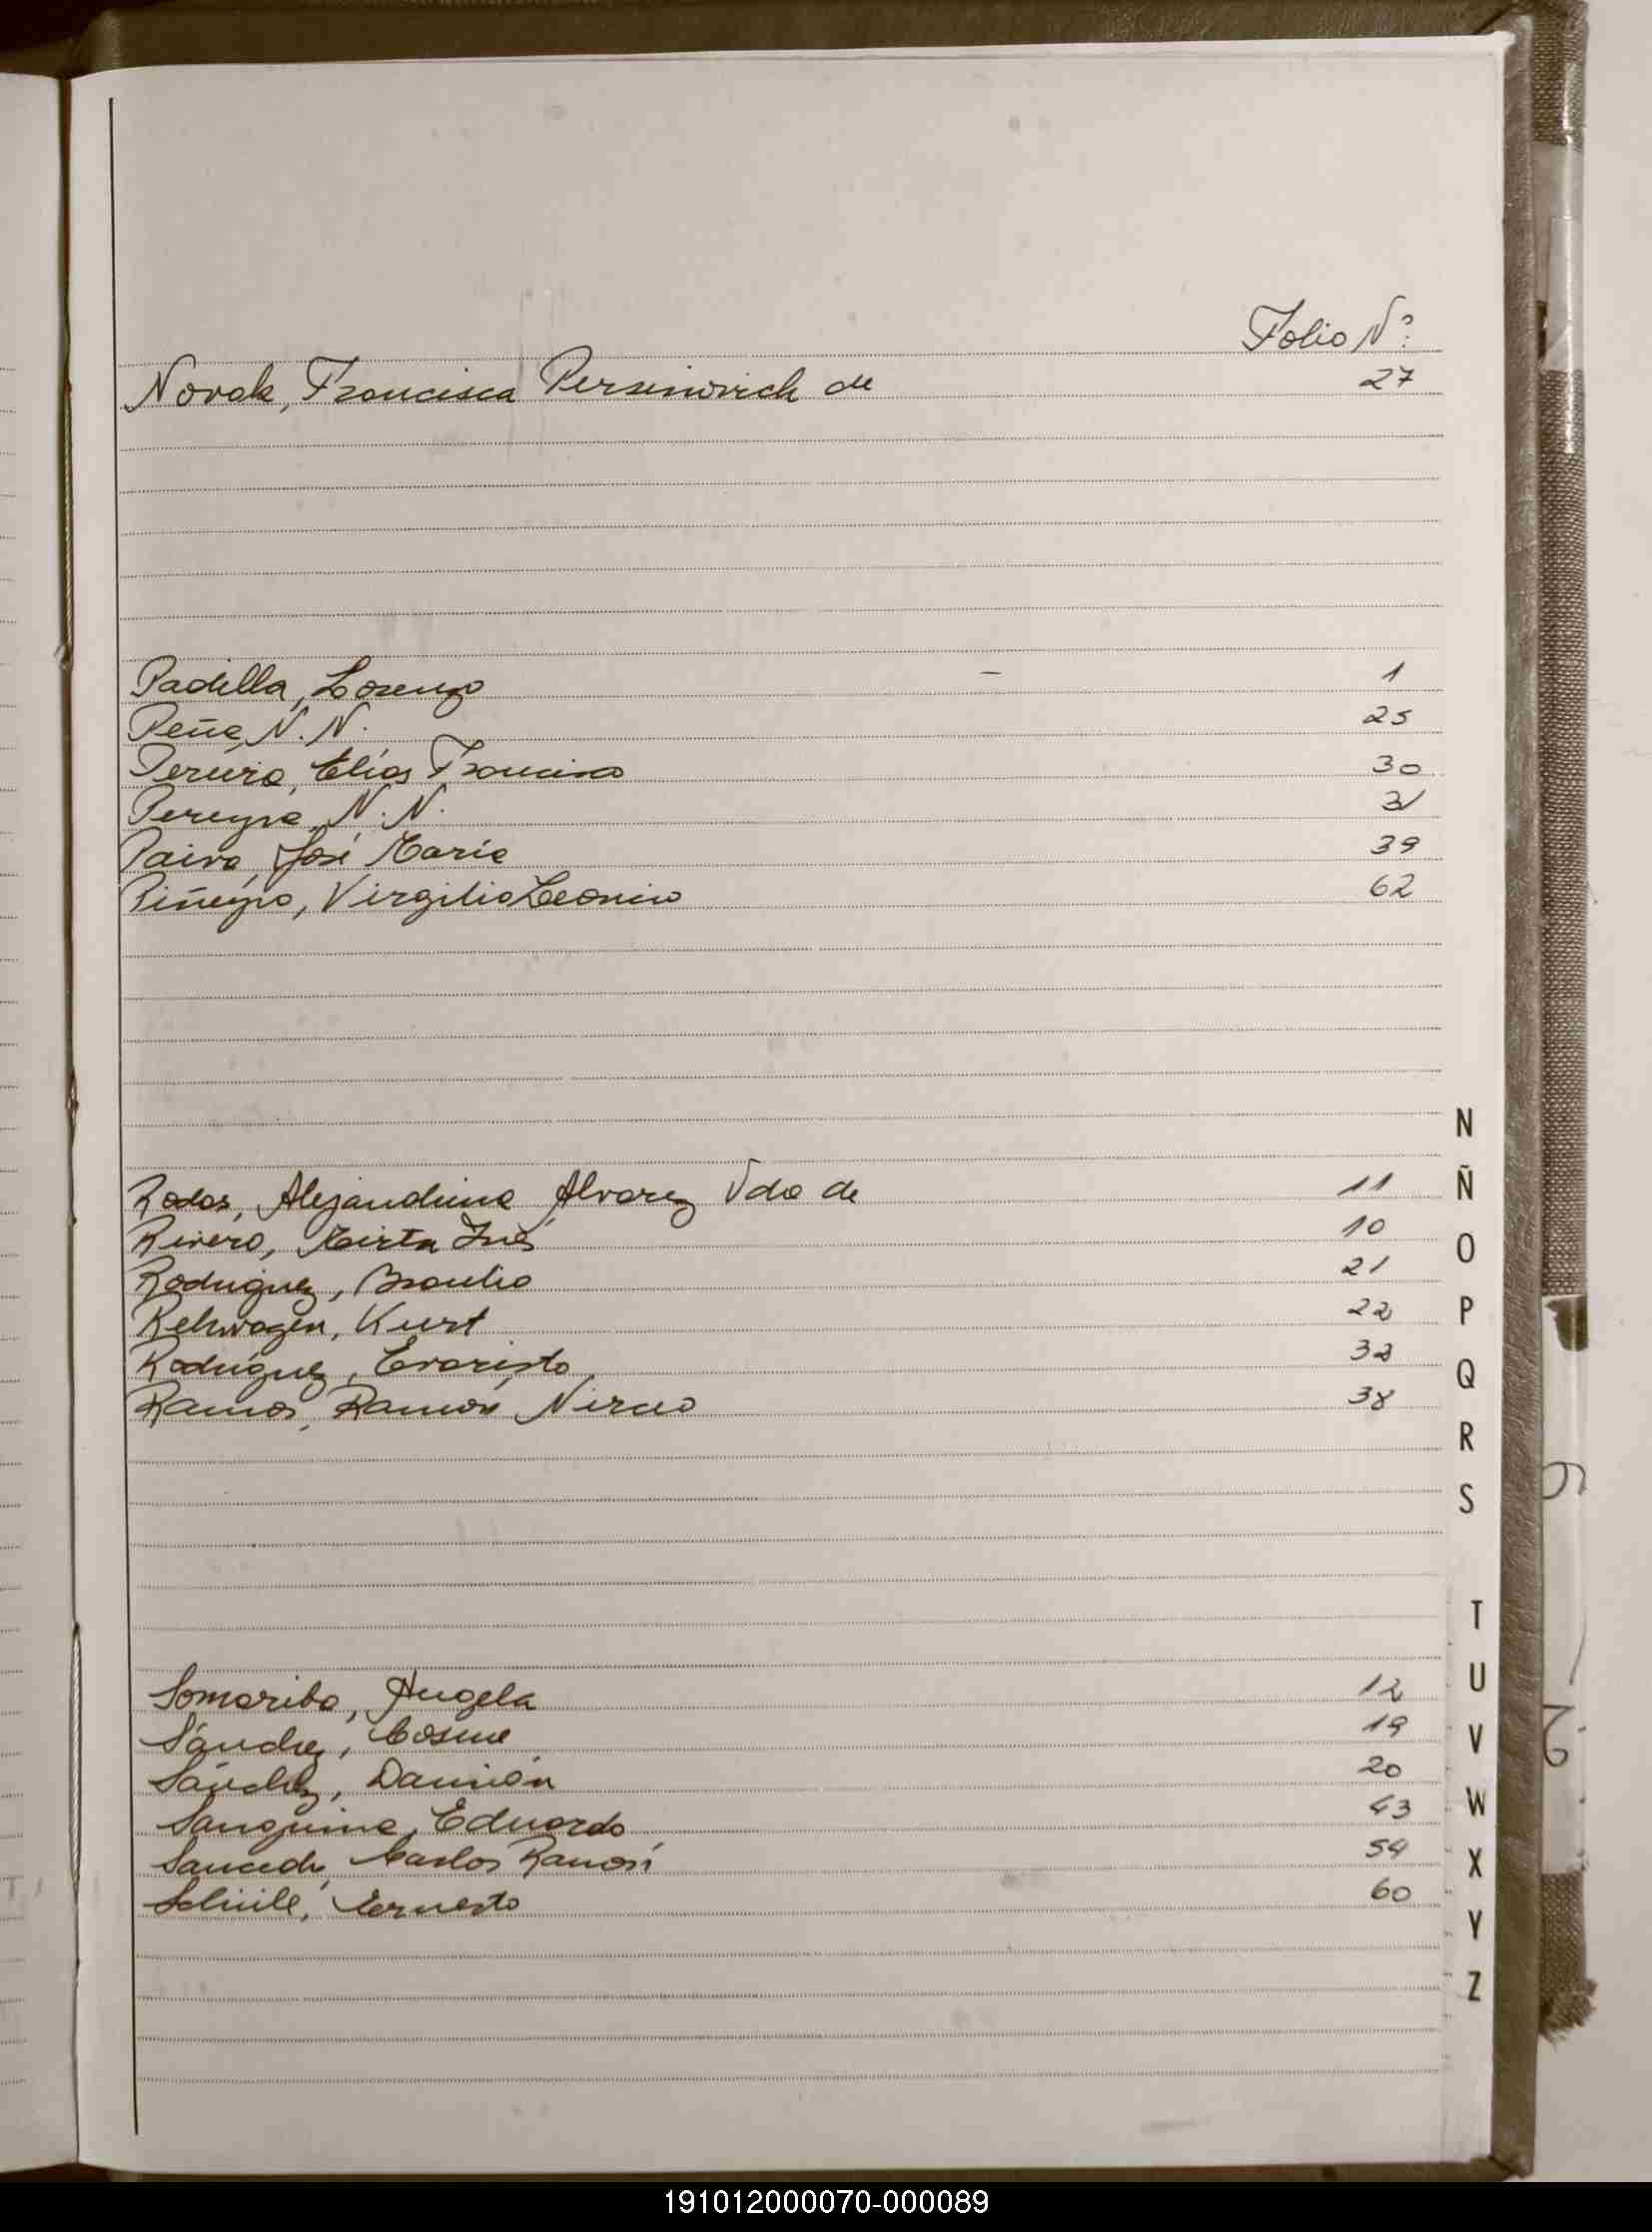 Folio Nº
Novak, Francisca Persinovich de 27
Padilla, Lorenzo - 1
Peña, N.N. 25
Pereira, Elías Francisco 30
Pereyra, N.N. 31
Paiva, José María 39
Piñeyro, Virgilio Leoncio 62
Rodas, Alejandrina Alvarez Vda de 11
Rivero, Mirta Inés 10
Rodríguez, Braulio 21
Rehwagen, Kurt 22
Rodríguez, Evaristo 32
Ramos, Ramón Nirceo 38
Somariba, Angela 12
Sánchez, Cosme 19
Sánchez, Damián 20
Sanguina, Eduardo 43
Saucedo, Carlos Ramón 54
Ernesto 60
N
Ñ
O
P
Q
R
S
T
U
V
W
X
Y
Z
191012000070-000089